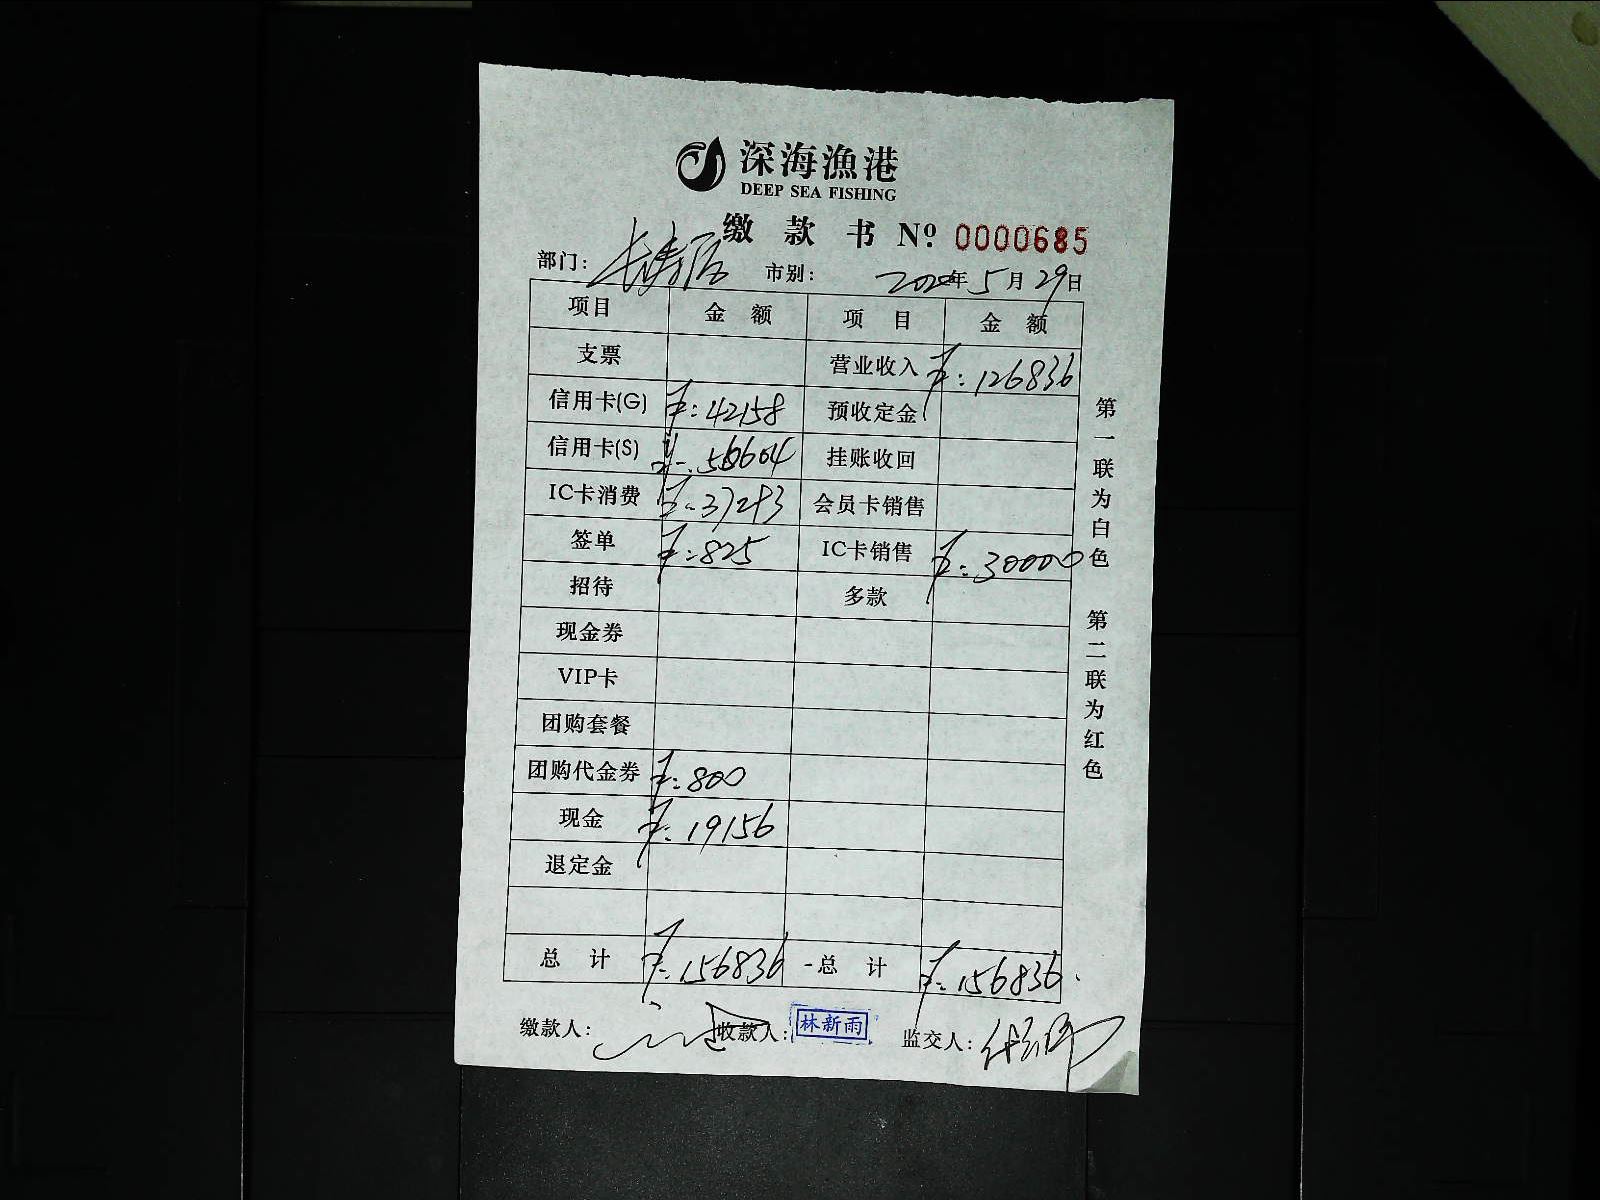 深海漁港
DEEP SEA FISHING
缴款书 Nº 0000685
部门: 长寿店 市别: 2020年5月29日
项目 金额 项目 金额
支票 营业收入 ¥:126836
信用卡(G) ¥:42158 预收定金
信用卡(S) ¥:56604 挂账收回
IC卡消费 ¥:37293 会员卡销售
签单 ¥:825 IC卡销售 ¥:30000
招待 多款
现金券
VIP卡
团购套餐
团购代金券 ¥:800
现金 ¥:19156
退定金
总计 ¥:156836 总计 ¥:156836
缴款人: 收款人: 林新雨 监交人:
第一联为白色 第二联为红色